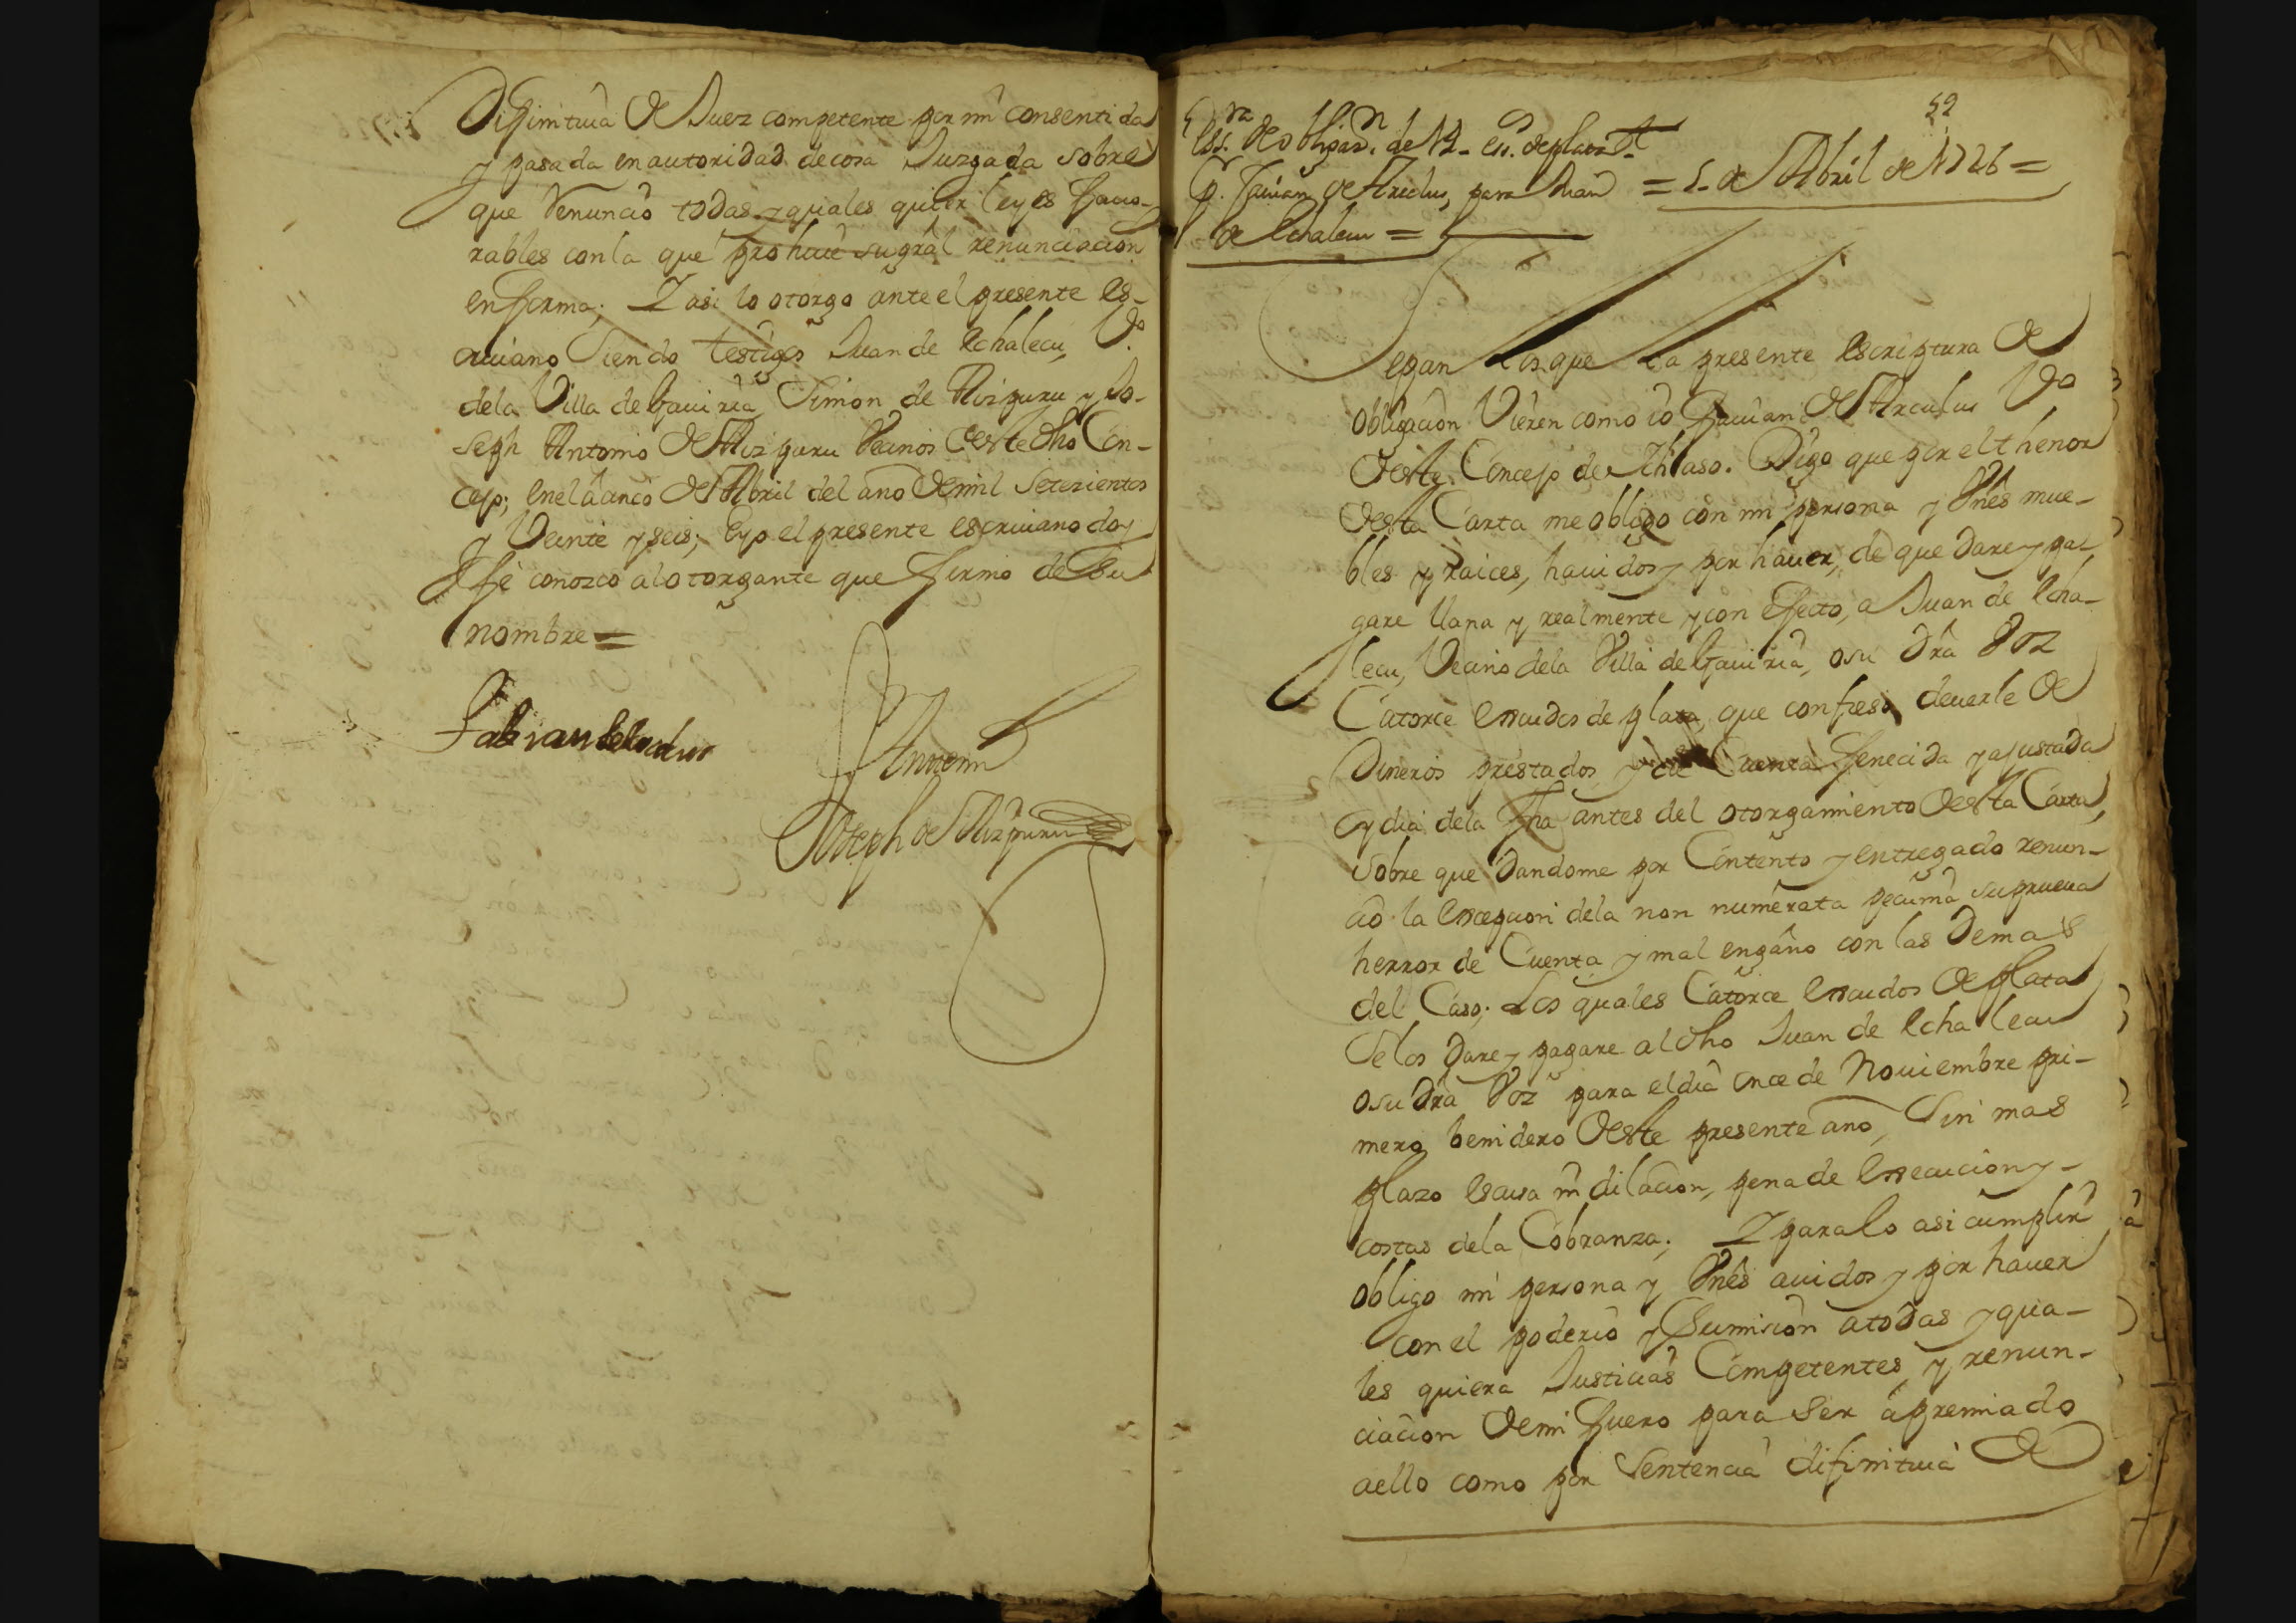 Difinitiua de Juez competente por mi consentida
y pasada en autoridad de cosa Juzgada sobre
que Renuncio todas y quales quier leyes fauo-
rables con la que prohiue su gral renunciacion
en forma; Y asi lo otorgo ante el presente es-
criuano Siendo testigos Juan de Echalecu, Vº
de la Villa de Gauiria Simon de Aizpuru y Jo-
seph Antonio de Aizpuru Vecinos deste dho Con-
cejo; en el a cinco de Abril del año de mil Setezientos
y Veinte y seis; E yo el presente escriuano doy
fe conozco al otorgante que firmo de su
nombre =
Fabian de
Ante mi
Joseph de Aizpuru
52
Essra de obligaon. de 14 es. de plata
Pr. Fauian de para Juan = 5 de Abril de 1726 =
de Echalecu =
Sepan los que la presente escriptura de
obligacion Vieren como io Fauian de Vº
deste Concejo de Ichaso. Digo que por el thenor
desta Carta me obligo con mi persona y Vnês mue-
bles y raices, hauidos y por hauer, de que dare y pa-
gare llana y realmente y con efecto, a Juan de Echa-
lecu, Vecino de la Villa de Gauiria, o su dra Voz
Catorce escudos de plata, que confieso deuerle de
Dineros prestados, y de Cuenta fenecida y ajustada
oy dia de la fha antes del otorgamiento desta Carta,
sobre que dandome por Contento y entregado renun-
cio la excepcion de la non numerata pecunia su prueua
herror de Cuenta y mal engaño con las demas
del Caso; Los quales Catorce escudos de plata
Se los dare y pagare al dho Juan de Echalecu
o su dra Voz para el dia once de Nouiembre pri-
mero benidero deste presente año, Sin mas
plazo escusa ni dilacion, pena de execucion y
costas de la Cobranza; Y para lo asi cumplir
obligo mi persona y Vnês auidos y por hauer
con el poderio y Sumision a todas y qua-
les quiera Justicias Competentes y renun-
ciacion de mi fuero para Ser apremiado
a ello como por Sentencia difinitiua de